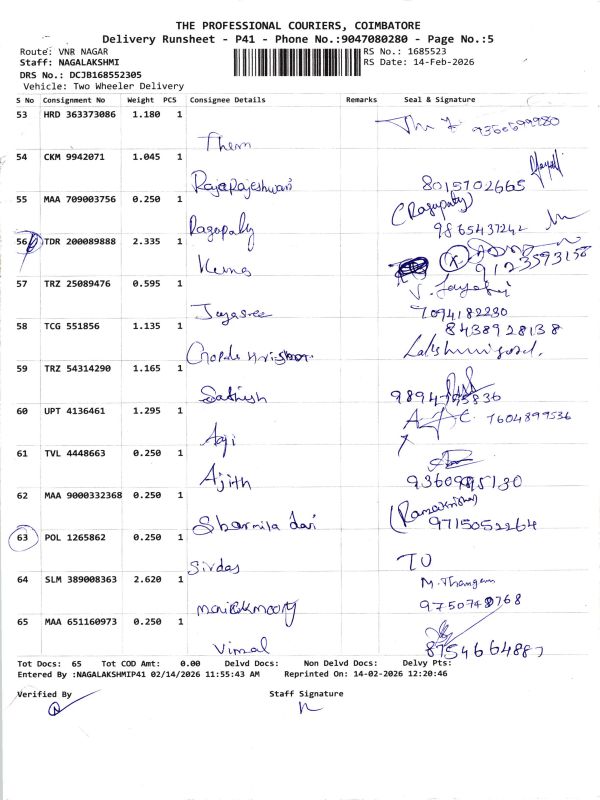 THE PROFESSIONAL COURIERS, COIMBATORE
Delivery Runsheet - P41 - Phone No.:9047080280 - Page No.:5
Route: VNR NAGAR
RS No.: 1685523
Staff: NAGALAKSHMI
RS Date: 14-Feb-2026
DRS No.: DCJB168552305
Vehicle: Two Wheeler Delivery
S No Consignment No Weight PCS Consignee Details Remarks Seal & Signature
53 HRD 363373086 1.180 1
Them
54 CKM 9942071 1.045 1
Rajarajeshwari 8015702665
55 MAA 709003756 0.250 1
(Ragupathy)
Ragopathy 9865437242
56 TDR 200089888 2.335 1
9123593158
57 TRZ 25089476 0.595 1
Jayasree 7094182230
58 TCG 551856 1.135 1
8438928138
59 TRZ 54314290 1.165 1
Sathish
60 UPT 4136461 1.295 1
7604899536
61 TVL 4448663 0.250 1
Ajith
62 MAA 9000332368 0.250 1
Sharmila dari 9715052264
63 POL 1265862 0.250 1
Sivdas
64 SLM 389008363 2.620 1
M. Thangam
65 MAA 651160973 0.250 1
Vimal 8754664887
Tot Docs: 65 Tot COD Amt: 0.00 Delvd Docs: Non Delvd Docs: Delvy Pts:
Entered By :NAGALAKSHMIP41 02/14/2026 11:55:43 AM Reprinted On: 14-02-2026 12:20:46
Verified By Staff Signature